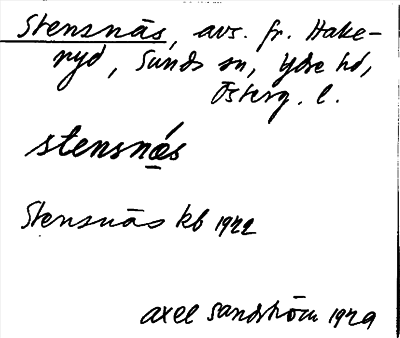 Stensnäs, avs. fr. Hake-
ryd, Sunds sn, Ydre hd,
Österg. l.
stensnǽs
Stensnäs kb 1922
Axel Sandström 1929